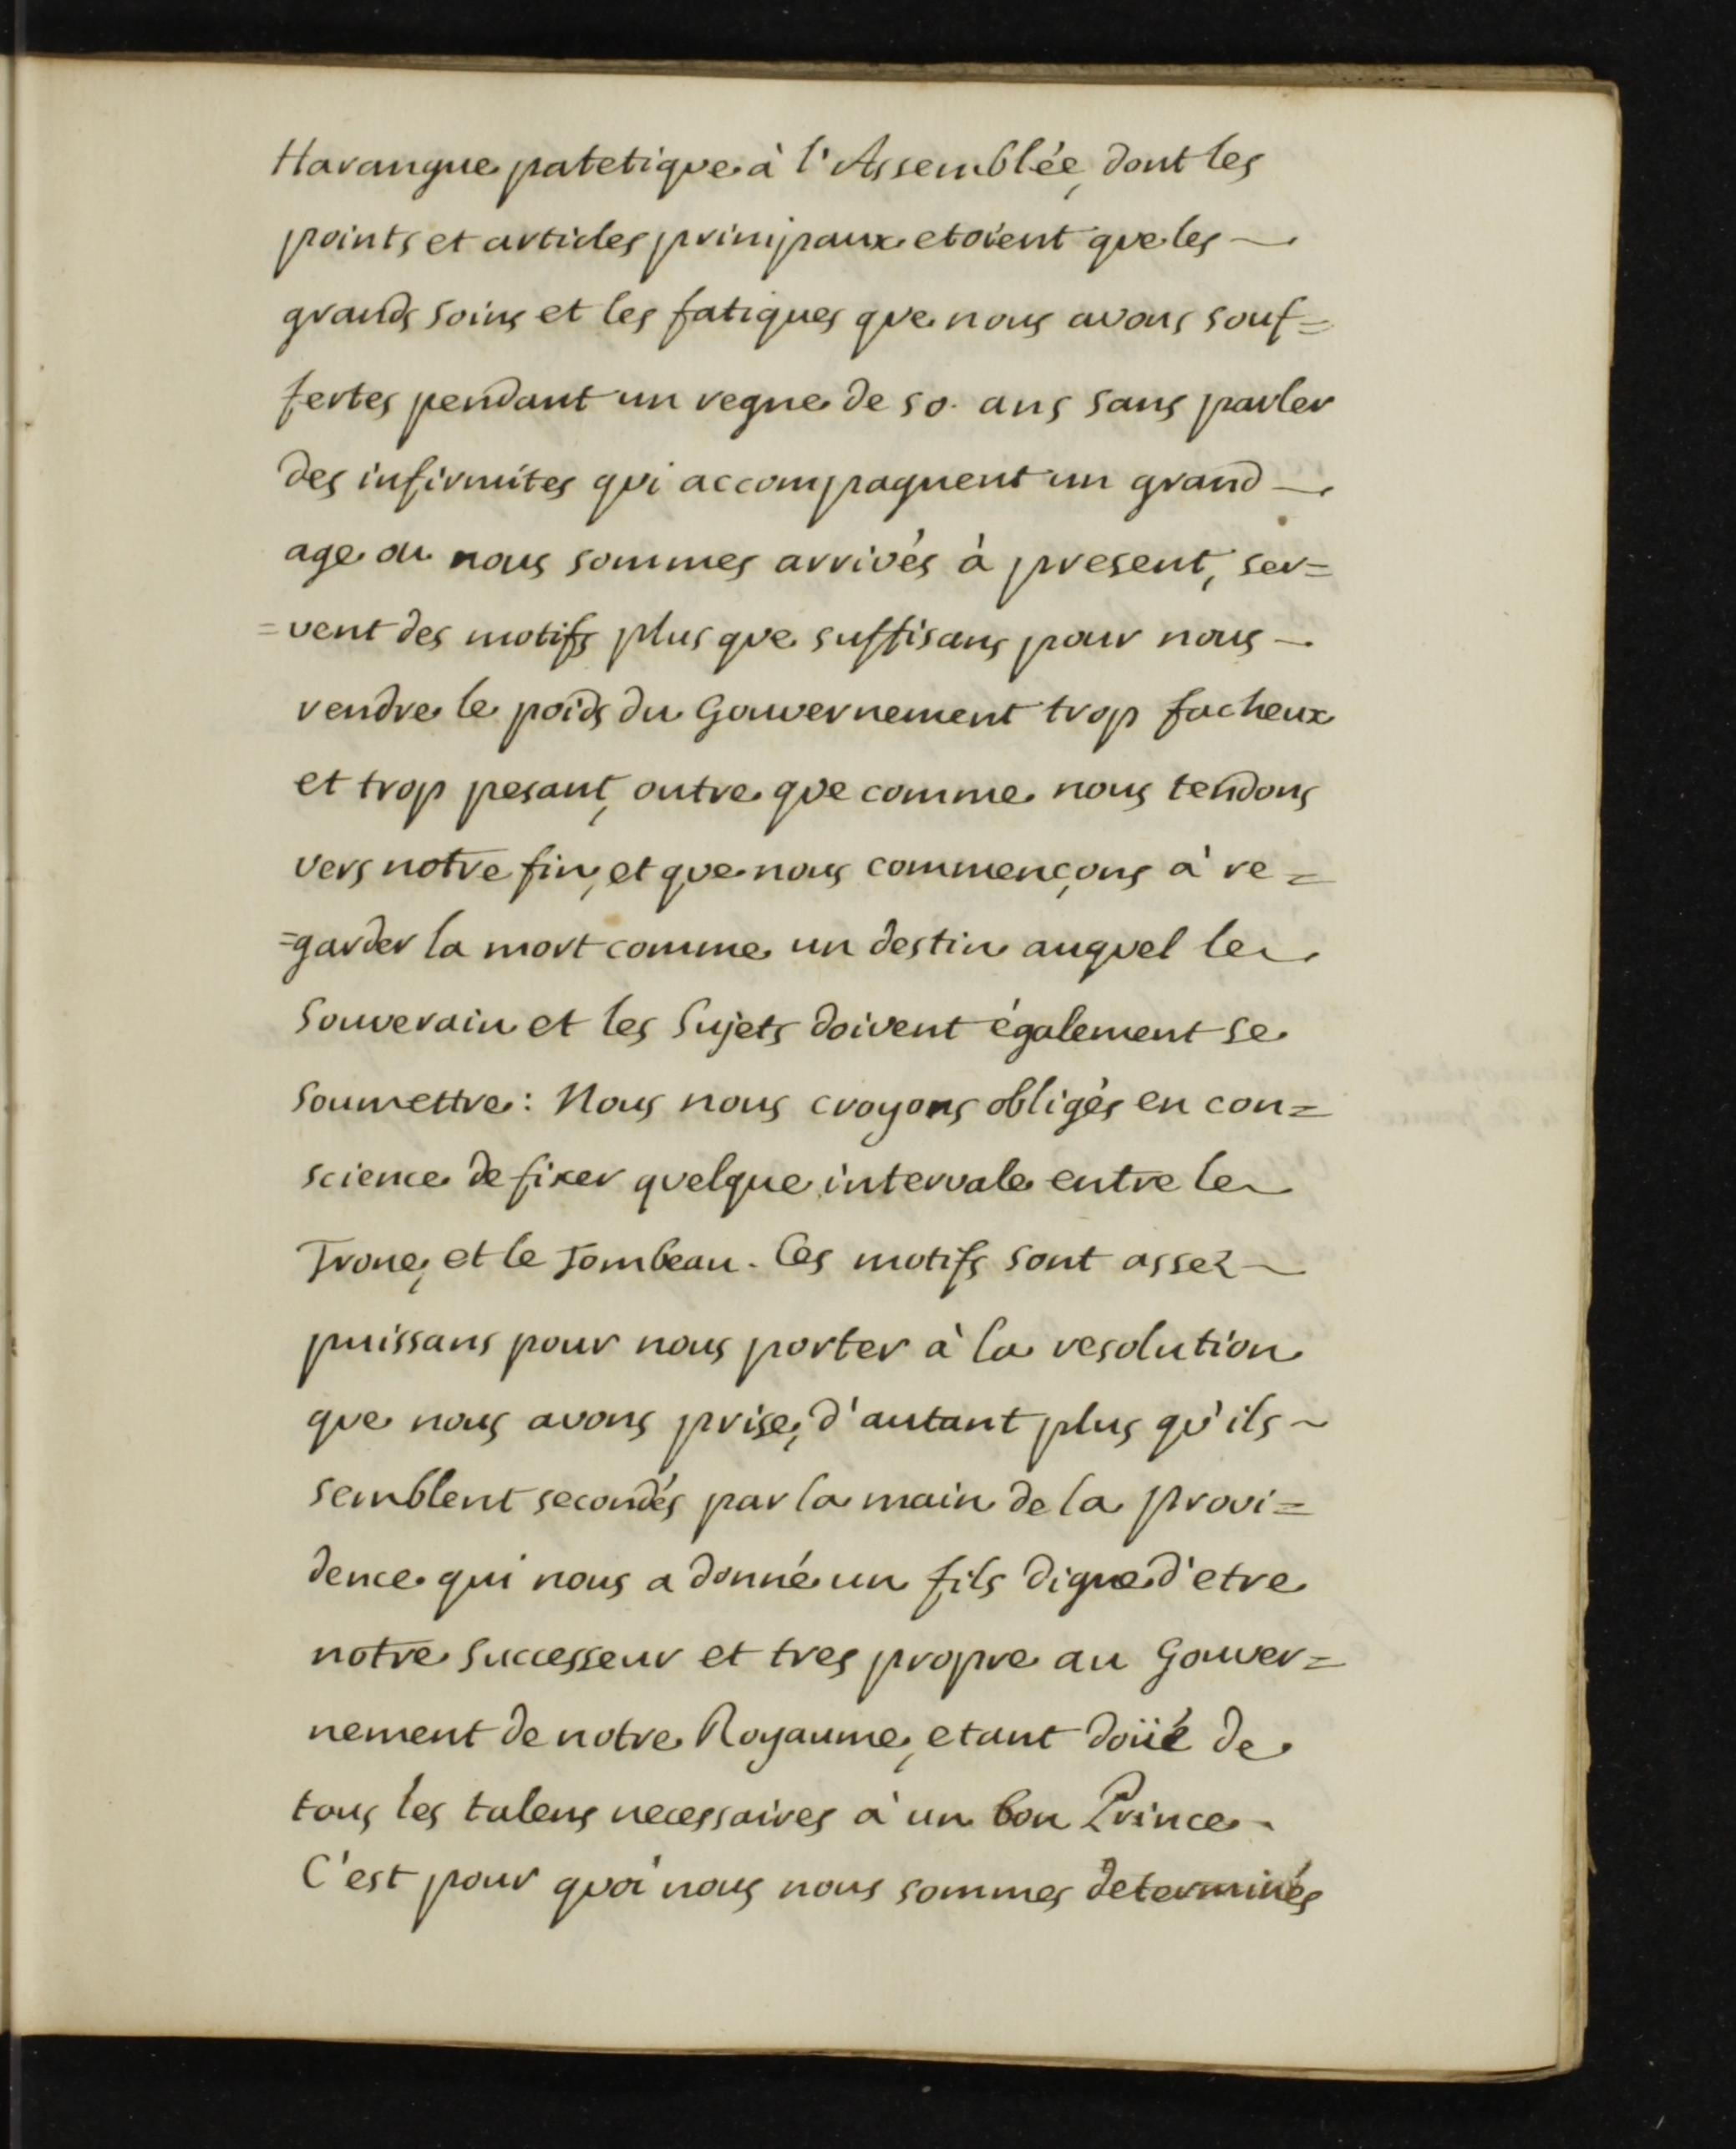 Harangue patetique à l'Assemblée, dont les
points et articles prinipaux etoient que les
grands soins et les fatiques que nous avons souf=
fertes pendant un regne de 50. ans sans parler
des infirmites qui accompagnent un grand
age ou nous sommes arrivés à present, ser=
=vent des motifs plus que suffisans pour nous
rendre le poids du Gouvernement trop facheux
et trop pesant, outre que comme nous tendons
vers notre fin, et que nous commençons à re=
=garder la mort comme un destin auquel le
Souverain et les Sujets doivent également se
soumettre: Nous nous croyons obligés en con=
science de fixer quelque intervale entre le
Trone, et le Tombeau. Ces motifs sont assez
puissans pour nous porter à la resolution
que nous avons prise, d'autant plus qu'ils
semblent secondés par la main de la provi=
dence qui nous a donné un fils digne d'etre
notre Successeur et tres propre au Gouver=
nement de notre Royaume, etant doüé de
tous les talens necessaires à un bon Prince.
C'est pour quoi nous nous sommes determinés